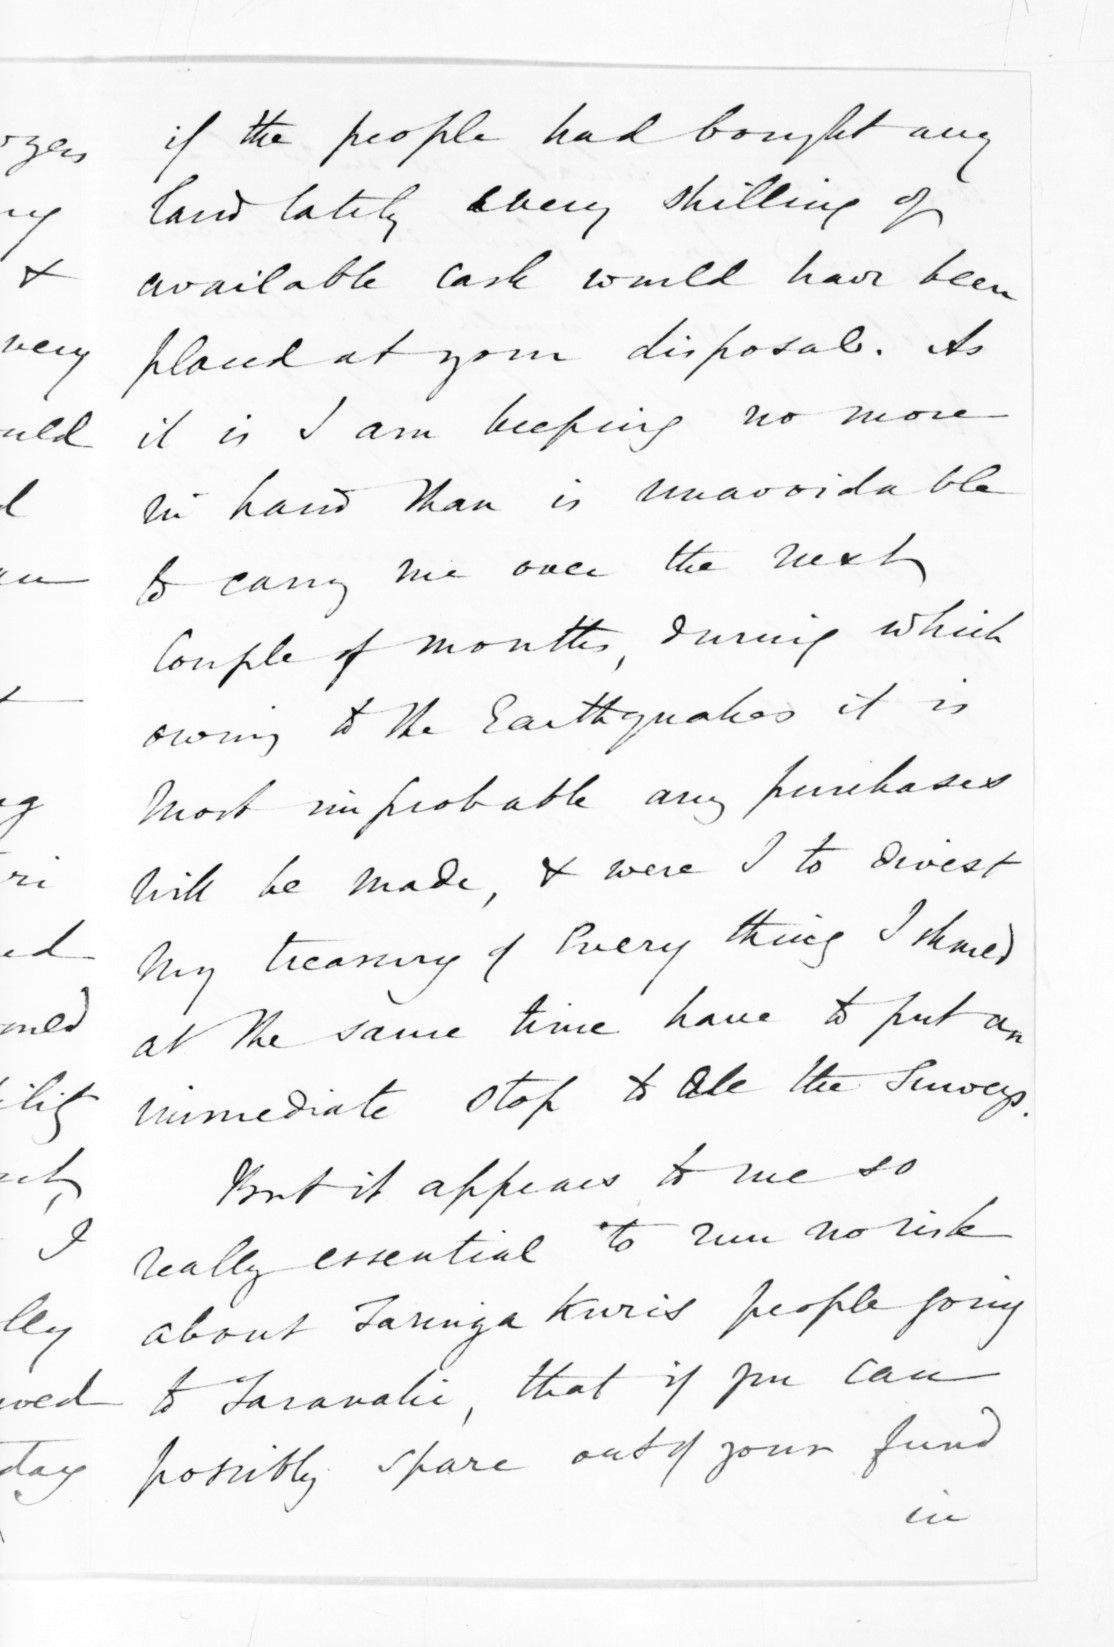 if the people had bought any
land lately every shilling of
available cash would have been
placed at your disposal. As
it is I am keeping no more
in hand than is unavoidable
to carry me over the next
Couple of months, during which
owing to the Earthquakes it is
Most improbable any purchases
will be made, & were I to divest
My treasury of Every thing I should
at the same time have to put an
immediate stop to all the Surveys.
But it appears to me so
really essential to run no risk
about Taringa Kuris people going
to Taranaki, that if you can
possibly spare out of your fund
in
&
very
I